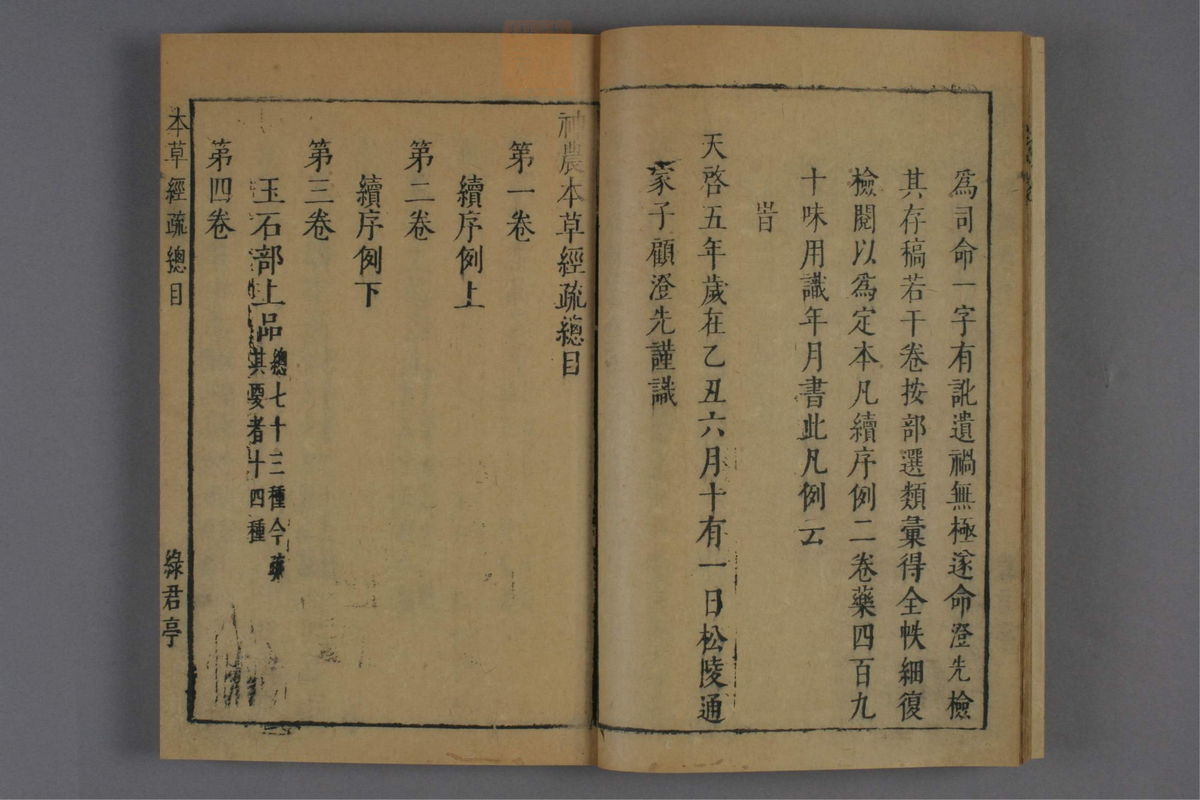 爲司命一字有訛遺禍無極遂命澄先檢
其存稿若干卷按部選類彙得全帙細復
檢閱以爲定本凡續序例二卷藥四百九
十味用識年月書此凡例云
旹
天啓五年歲在乙丑六月十有一日松陵通
家子顧澄先謹識
神農本草經疏總目
第一卷
續序例上
第二卷
續序例下
第三卷
玉石部上品
總七十三種今疏
其要者十四種
第四卷
本草經疏總目
綠君亭